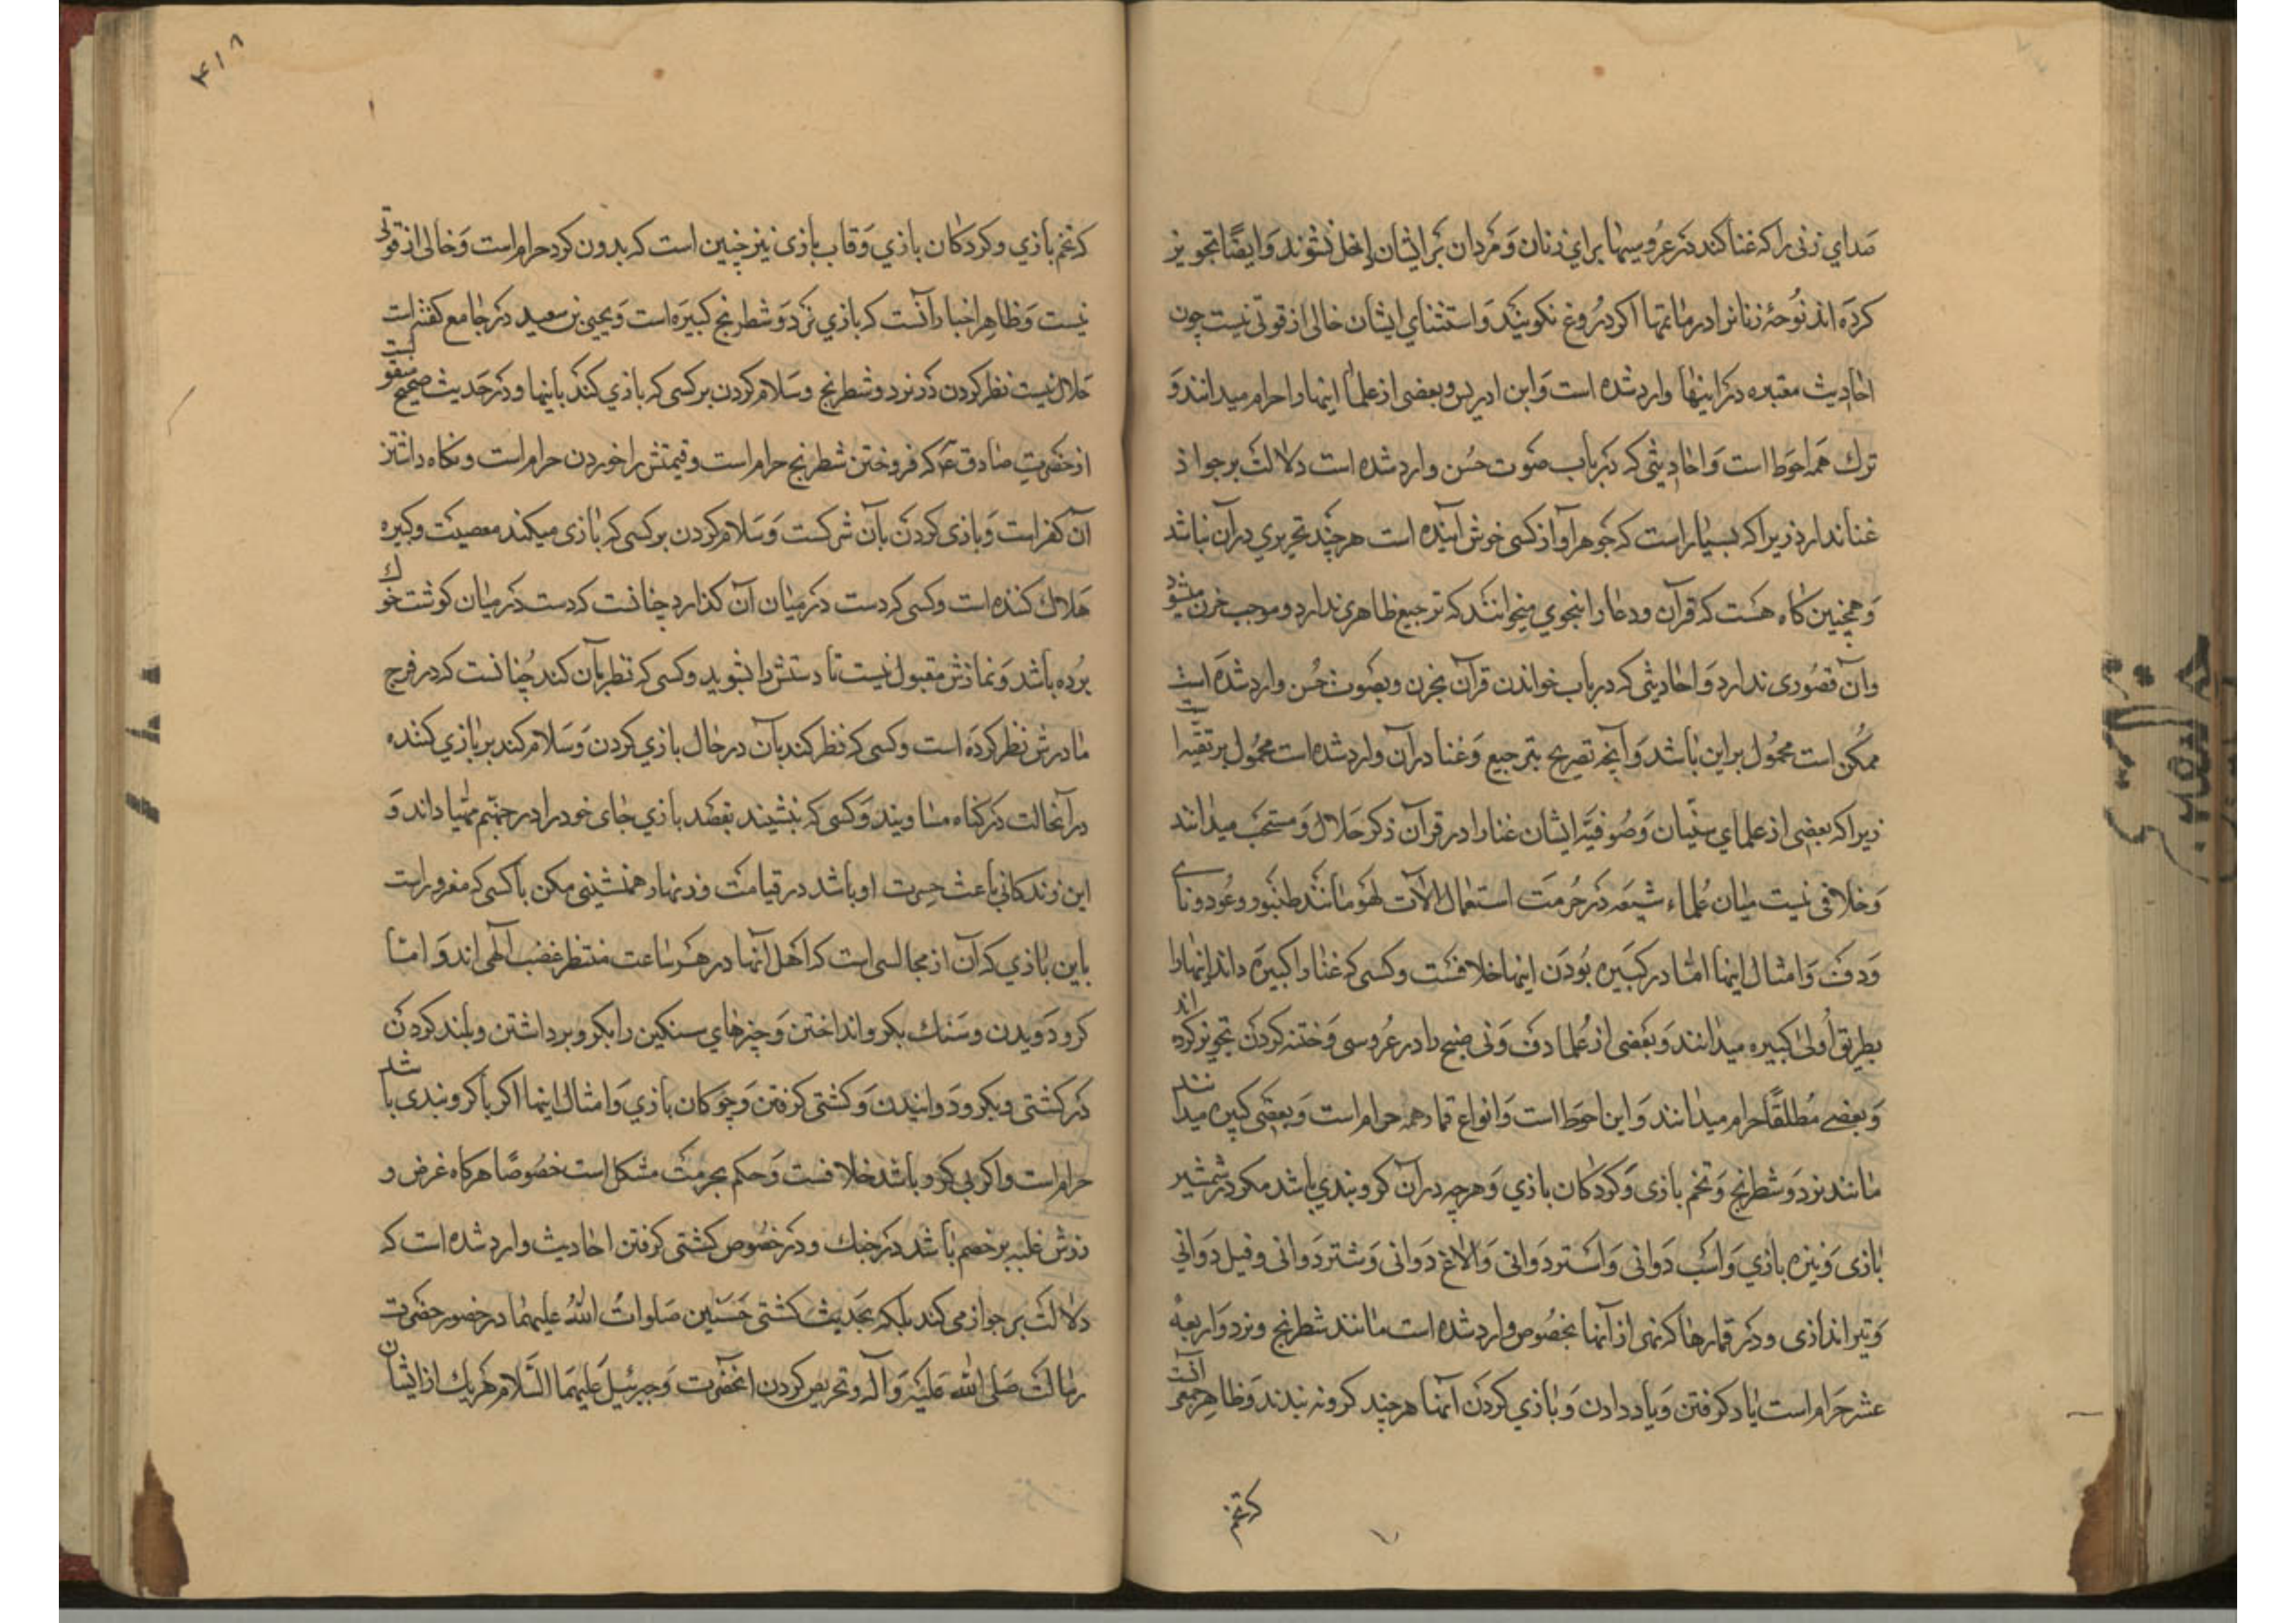 صدای زنی را که غنا کند در عروسیها برای زنان و مردان بر ایشان داخل نشوند و ایضًا تجویز
کرده اند نوحهٔ زنانرا در ماتمها اکر دروغ نکویند و استثنای ایشان خالی از قوتی نیست چون
احادیث معتبره در اینها وارد شده است و ابن ادریس و بعضی از علما اینها را حرام میدانند و
ترك همه احوط است و احادیثی که در باب صوت حسن وارد شده است دلالت بر جواز
غنا ندارد زیرا که بسیار است که جوهر آواز کسی خوش آینده است هر چند تحریری در آن نباشد
و همچنین کاه هست که قرآن و دعا را بنحوی میخوانند که ترجیع ظاهری ندارد و موجب حزن میشود
و آن قصوری ندارد و احادیثی که در باب خواندن قرآن بحزن و بصوت حسن وارد شده است
ممکن است محمول بر این باشد و آنچه تصریح بترجیع و غنا در آن وارد شده است محمول بر تقیه است
زیرا که بعضی از علمای سنّیان و صوفیّه ایشان غنا را در قرآن و ذکر حلال و مستحب میدانند
و خلافی نیست میان علماء شیعه در حرمت استعمال آلات لهو مانند طنبور و عود و نای
و دف و امثال اینها امّا در کبیره بودن اینها خلافست و کسی که غنا را کبیره داند اینها را
بطریق اولی کبیره میدانند و بعضی از علما دف و نی ضبح را در عروسی و ختنه کردن تجویز کرده اند
و بعضی مطلقًا حرام میدانند و این احوط است و انواع قمار همه حرام است و بعضی کبیره میدانند
مانند نرد و شطرنج و تخم بازی و کردکان بازی و هرچه در آن کرو بندی باشد مکر در شمشیر
بازی و نیزه بازی و اسب دوانی و استر دوانی و الاغ دوانی و شتر دوانی و فیل دوانی
و تیر اندازی و در قمارها که نهی از آنها بخصوص وارد شده است مانند شطرنج و نرد و اربعه
عشر حرام است یاد کرفتن و یاد دادن و بازی کردن آنها هر چند کرو نه بندند و ظاهر جمعی آنست
که تخم
۴۱۸
که تخم بازی و کردکان بازی و قاب بازی نیز چنین است که بدون کرو حرام است و خالی از قوتی
نیست و ظاهر اخبار آنست که بازی نرد و شطرنج کبیره است و یحیی بن سعید در جامع کفته است
حلال نیست نظر کردن در نرد و شطرنج و سلام کردن بر کسی که بازی کند باینها و در حدیث صحیح منقولست
از حضرت صادق ع که فروختن شطرنج حرام است و قیمتش را خوردن حرام است و نکاه داشتن
آن کفر است و بازی کردن بآن شرکست و سلام کردن بر کسی که بازی میکند معصیت و کبیره
هلاك کننده است و کسی که دست در میان آن کذارد چنانست که دست در میان کوشت خوك
برده باشد و نمازش مقبول نیست تا دستش را نشوید و کسی که نظر بآن کند چنانست که در فرج
مادرش نظر کرده است و کسی که نظر کند بآن در حال بازی کردن و سلام کند بر بازی کننده
در آنحالت در کناه مساویند و کسی که بنشیند بقصد بازی جای خود را در جهنّم مهیّا داند و
این زندکانی باعث حسرت او باشد در قیامت و زنهار همنشینی مکن با کسی که مغرور است
باین بازی که آن از مجالسی است که اهل آنها در هر ساعت منتظر غضب الهی اند و امّا
کرو دویدن و سنك بکرو انداختن و چیزهای سنکین را بکرو برداشتن و بلند کردن
در کشتی و بکرو دوانیدن و کشتی کرفتن و چوکان بازی و امثال اینها اکر با کرو بندی باشد
حرام است و اکر بی کرو باشد خلافست و حکم بحرمت مشکل است خصوصًا هرکاه غرض و
زش غلبه بر خصم باشد در جنك و در خصوص کشتی کرفتن احادیث وارد شده است که
دلالت بر جواز می کند بلکه بحدیث کشتی حسنین صلوات الله علیهما در حضور حضرت
رسالت صلی الله علیه و آله و تحریص کردن آنحضرت و جبرئیل علیهما السّلام هر یك از ایشان